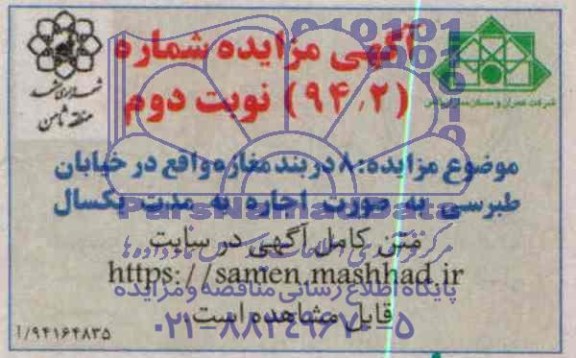 شهرداری مشهد
منطقه ثامن
آگهی مزایده شماره
(۹۴،۲) نوبت دوم
شرکت عمران و مسکن سازان ثامن
موضوع مزایده: ۸ دربند مغازه واقع در خیابان
طبرسی به صورت اجاره به مدت یکسال
ParsNamadData
متن کامل آگهی در سایت
https://samen.mashhad.ir
پایگاه اطلاع رسانی مناقصه و مزایده
قابل مشاهده است.
۰۲۱-۸۸۳۴۹۶۷۰-۵
۹۴۱۶۴۸۳۵/ا